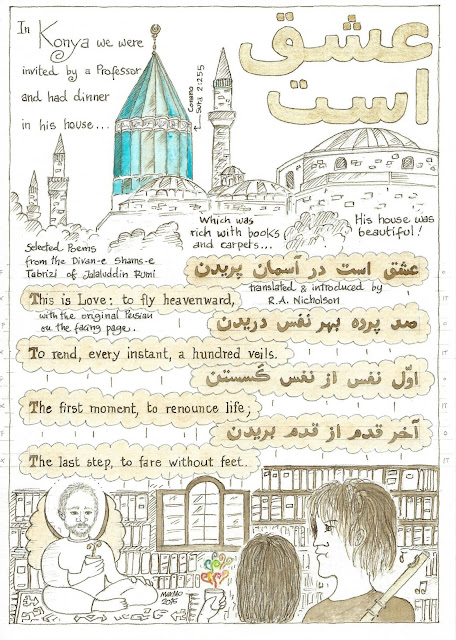 In Konya we were
invited by a Professor
and had dinner
in his house...
Corano
Sura 2:255
عشق
است
Which was
rich with books
and carpets...
His house was
beautiful!
Selected Poems
from the Divan-e Shams-e
Tabrizi of Jalaluddin Rumi
عشق است در آسمان پریدن
translated & introduced by
R.A. Nicholson
This is Love: to fly heavenward,
with the original Persian
on the facing page.
صد پروه بهر نفس دریدن
To rend, every instant, a hundred veils.
اوّل نفس از نفس گسستن
The first moment, to renounce life;
آخر قدم از قدم بریدن
The last step, to fare without feet.
2015